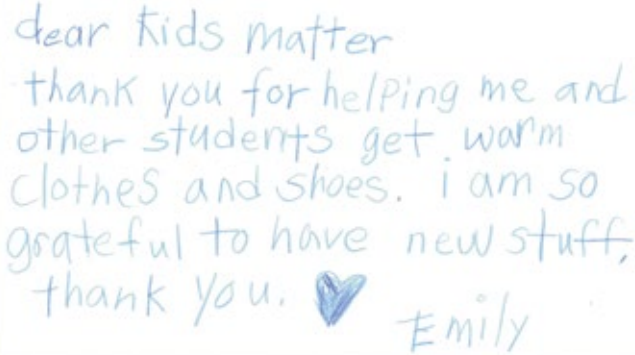 dear kids matter
thank you for helping me and
other students get warm
clothes and shoes. i am so
grateful to have new stuff,
thank you.
Emily